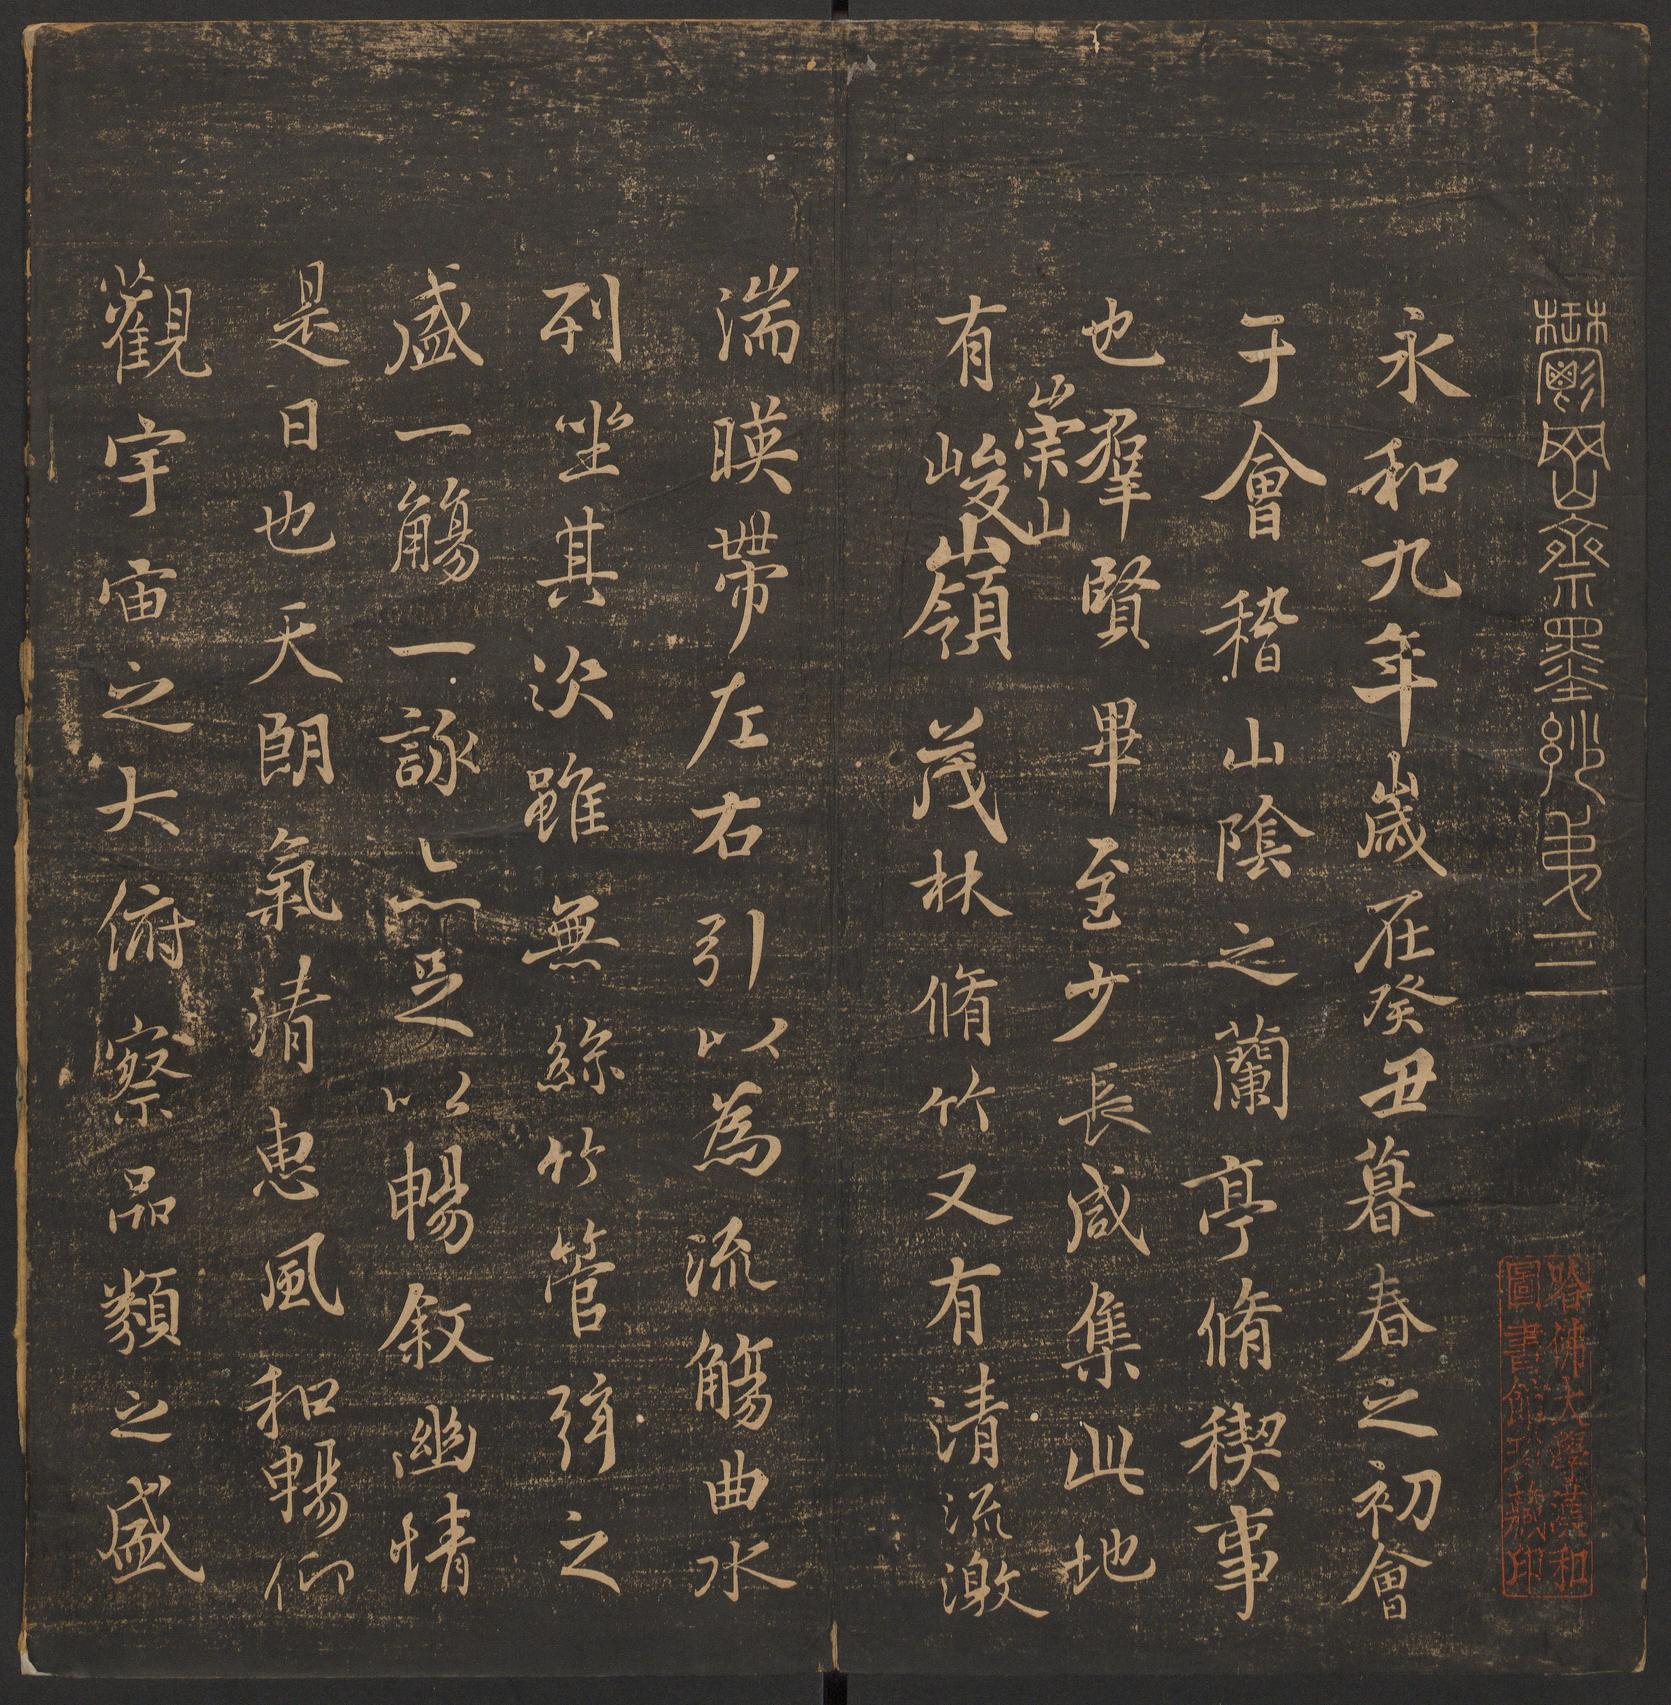 鬱岡齋墨妙弟三
哈佛大學漢和
圖書館珍藏印
永和九年歲在癸丑暮春之初會
于會稽山陰之蘭亭脩禊事
也羣賢畢至少長咸集此地
崇山
有峻嶺茂林脩竹又有清流激
湍暎帶左右引以為流觴曲水
列坐其次雖無絲竹管弦之
盛一觴一詠亦足以暢敘幽情
是日也天朗氣清惠風和暢仰
觀宇宙之大俯察品類之盛